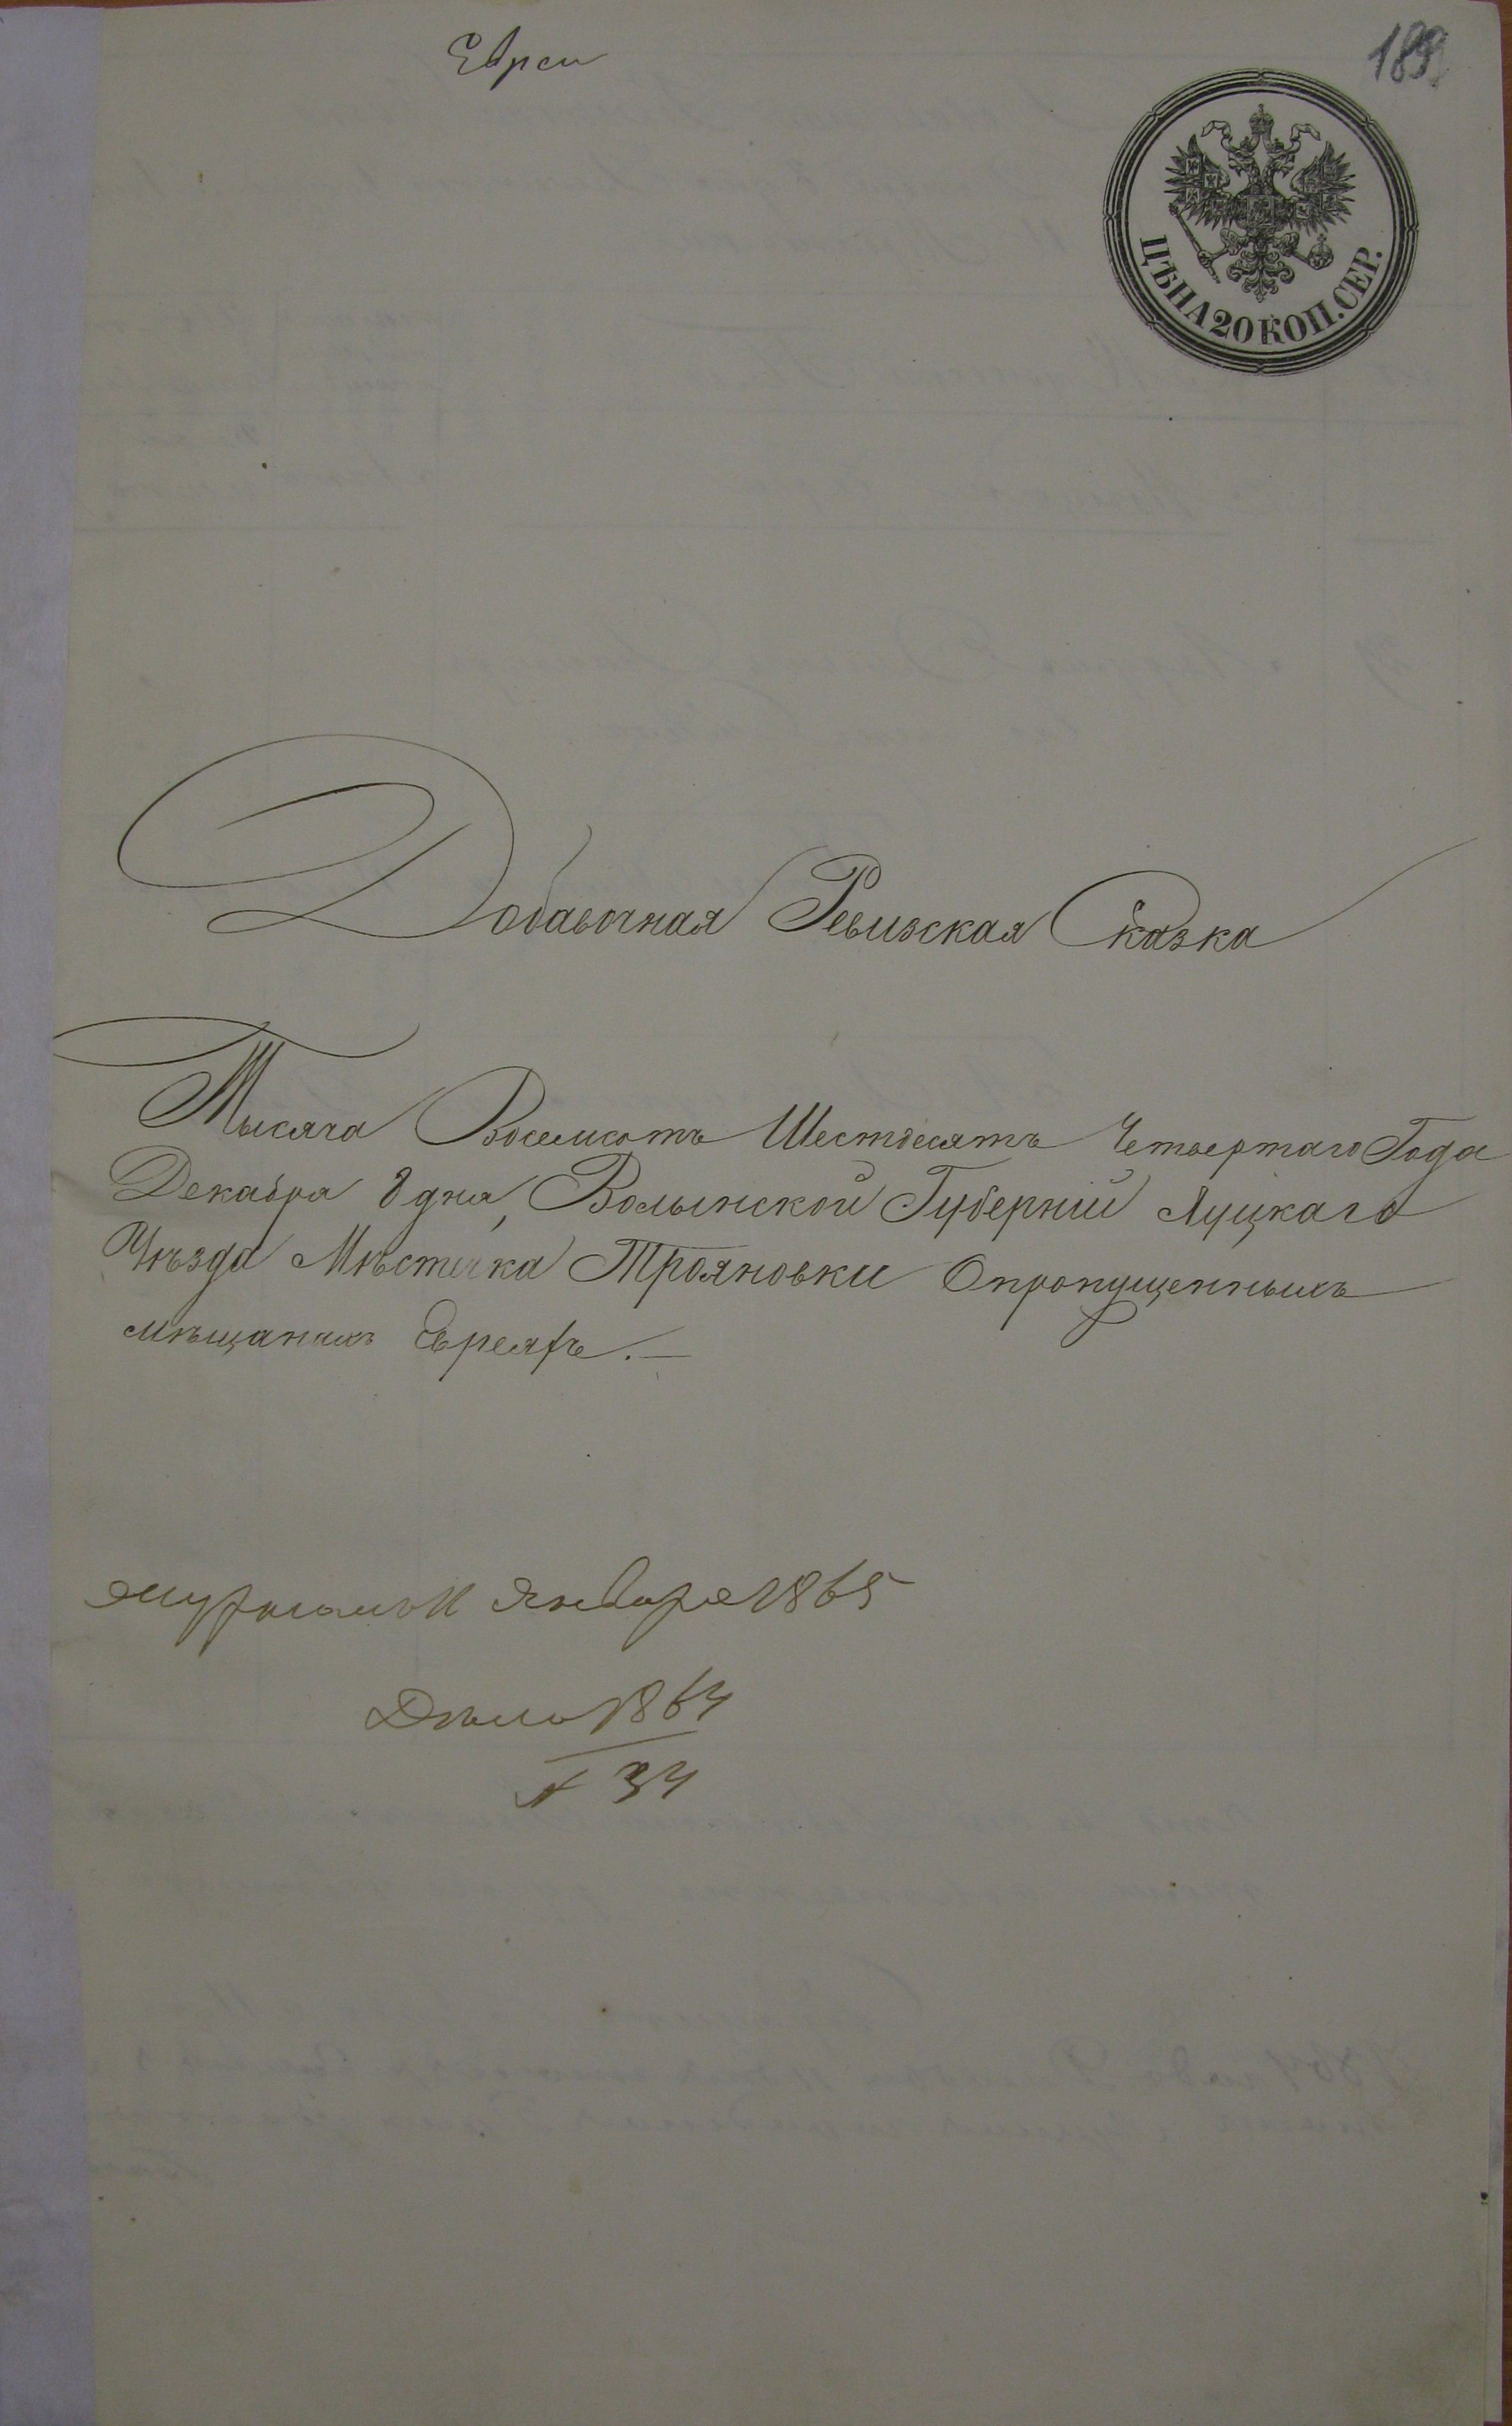 Евреи
189
ЦѢНА 20 КОП. СЕР.
Добавочная Ревизская Сказка
Тысяча Восемсотъ Шестдесятъ Четвертаго Года
Декабря 8 дня, Волынской Губерніи Луцкаго
Уѣзда Мѣстечка Трояновки Опропущенныхъ
мѣщанахъ Евреяхъ.—
Января 1865
Дѣло 1864
№ 34